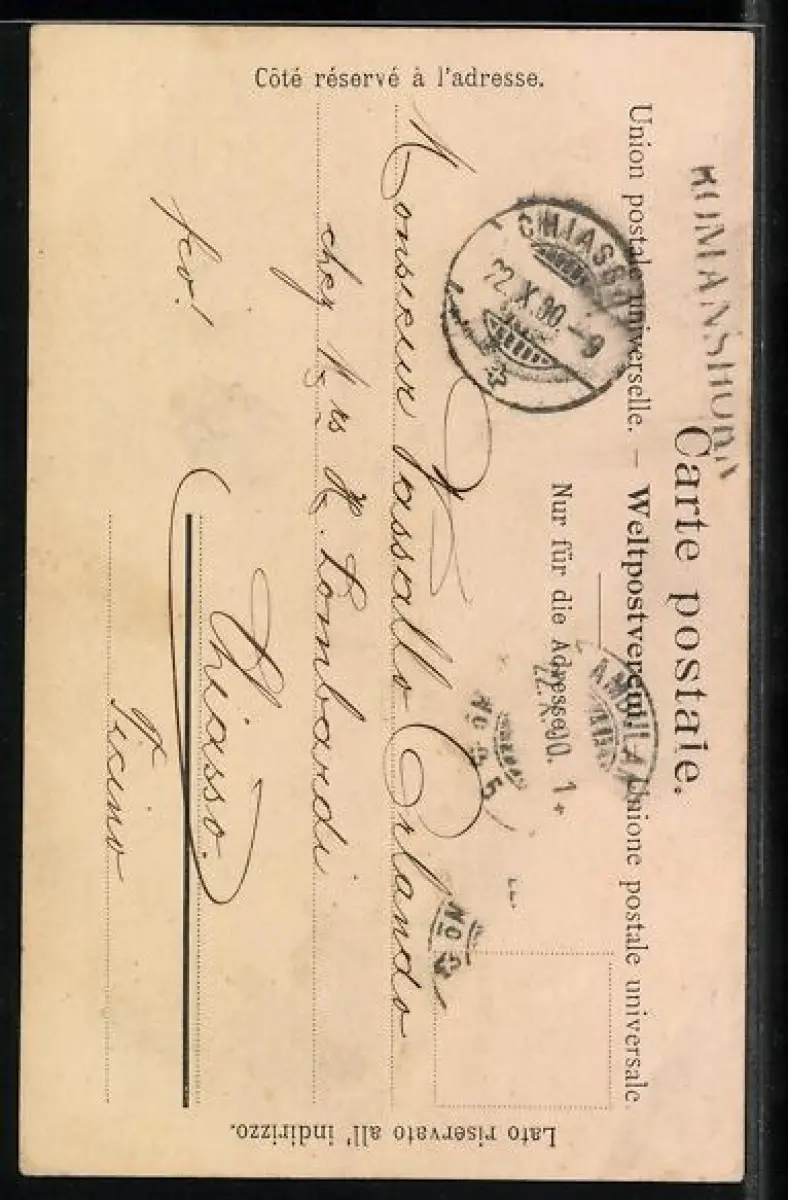 ROMANSHORN
Carte postale.
Union postale universelle. – Weltpostverein. – Unione postale universale.
Nur für die Adresse.
Côté réservé à l'adresse.
Lato riservato all' indirizzo.
CHIASSO
22.X.90.-9
22.X.00. 1
No
No
Monsieur Vassallo Orlando
chez Mrs H. Lombardi
fco!
Chiasso.
Ticino